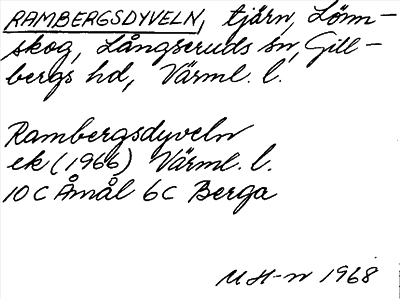 RAMBERGSDYVELN, tjärn, Lönn-
skog, Långseruds sn, Gill-
bergs hd, Värml. l.
Rambergsdyveln
ek (1966) Värml. l.
10C Åmål 6C Berga
M H-n 1968